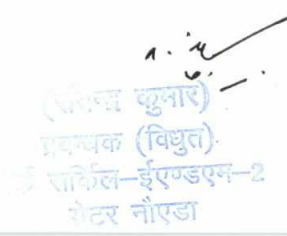 कुमार)
प्रबन्धक (विधुत)
सर्किल–ईएण्डएम–2
ग्रेटर नौएडा